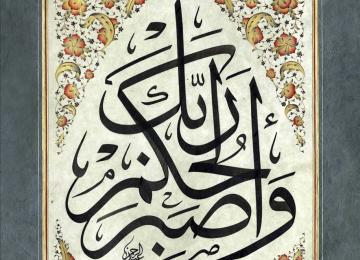 واصبر
لحكم
ربك